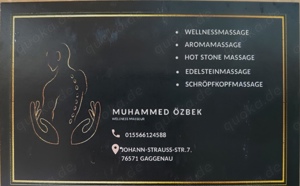 • WELLNESSMASSAGE
• AROMAMASSAGE
• HOT STONE MASSAGE
• EDELSTEINMASSAGE
• SCHRÖPFKOPFMASSAGE
MUHAMMED ÖZBEK
WELLNESS MASSEUR
015566124588
JOHANN-STRAUSS-STR.7,
76571 GAGGENAU